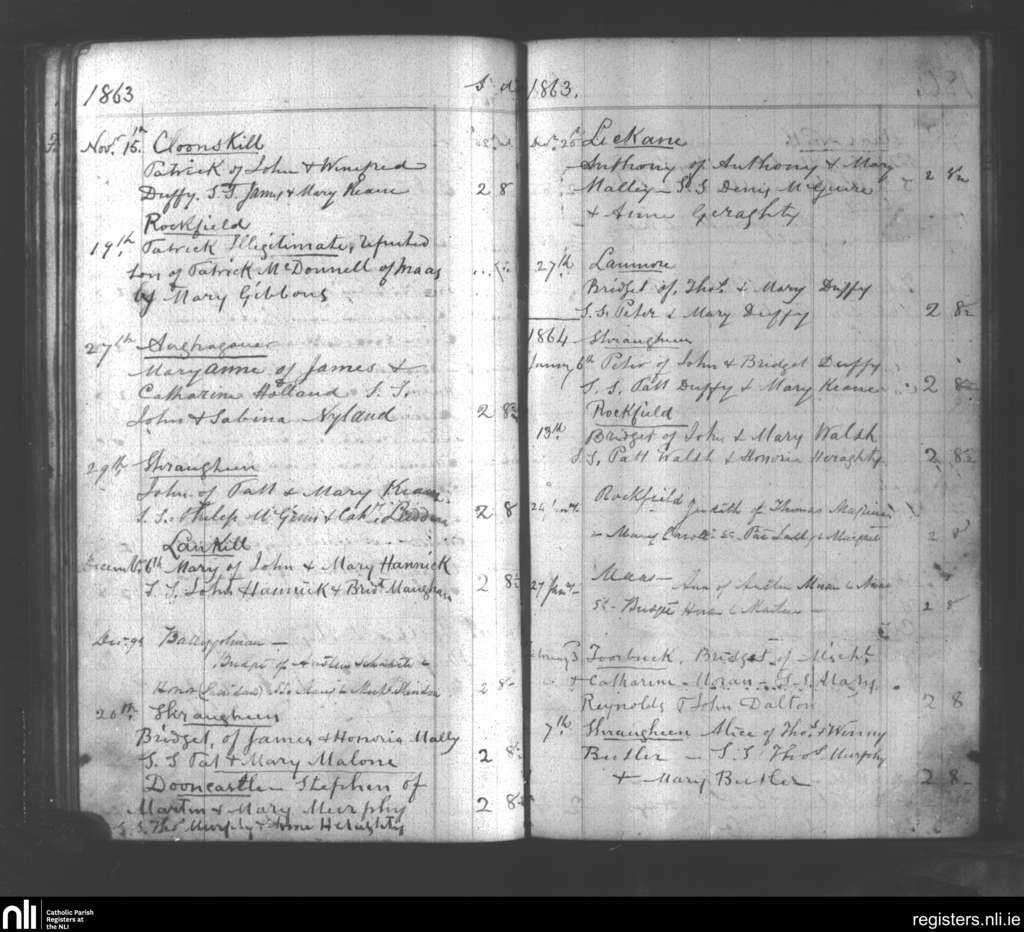 1863
s d
Novr. 15th Cloonskill
Patrick of John & Winefred
Duffy. S.S James & Mary Keane 2 8
Rockfield
19th Patrick Illegitimate, reputed
son of Patrick McDonnell of Maas
by Mary Gibbons
27th Aughagower
Maryanne of James &
Catharine Holland S.S.
John & Sabina Nyland 2 8
29th Shraugheen
John of Patt & Mary Keane
S.S. Philip & Cath. 2 8
Lankill
Decembr. 6th Mary of John & Mary Hannick
S.S. John Hannick & Bridt Maughan 2 8
Decr. 9
Bridget of &
Honor 2 8
20th Shraugheen
Bridget, of James & Honoria Mally
S.S Pat & Mary Malone 2 8
Dooncastle Stephen of
Martin & Mary Murphy 2 8
S.S. Thos Murphy & Anne Heraghty
1863.
Decr. 25 Leckane
Anthony of Anthony & Mary
Malley - S.S Denis McGuire 2 8
& Anne Geraghty
27th Lanmore
Bridget of Thos. & Mary Duffy
S.S. Peter & Mary Duffy 2 8
1864 Shraugheen
January 6th Peter of John & Bridget Duffy
S.S. Patt Duffy & Mary Keane 2 8
Rockfield
13th Bridget of John & Mary Walsh
S.S. Patt Walsh & Honoria Heraghty 2 8
24 Jany. Rockfield Judith of Thomas
& Mary Pat & Margaret 2 8
27 Jany. Maas - Ann of Moran &
Bridget & Martin - 2 8
February 3 Toorbuck. Bridget of Michl.
& Catharine Moran - S.S. Mary
Reynolds & John Dalton 2 8
7th Shraugheen Alice of Thos. & Winny
Butler - S.S Thos. Murphy
& Mary Butler 2 8
nli
Catholic Parish
Registers at
the NLI
registers.nli.ie